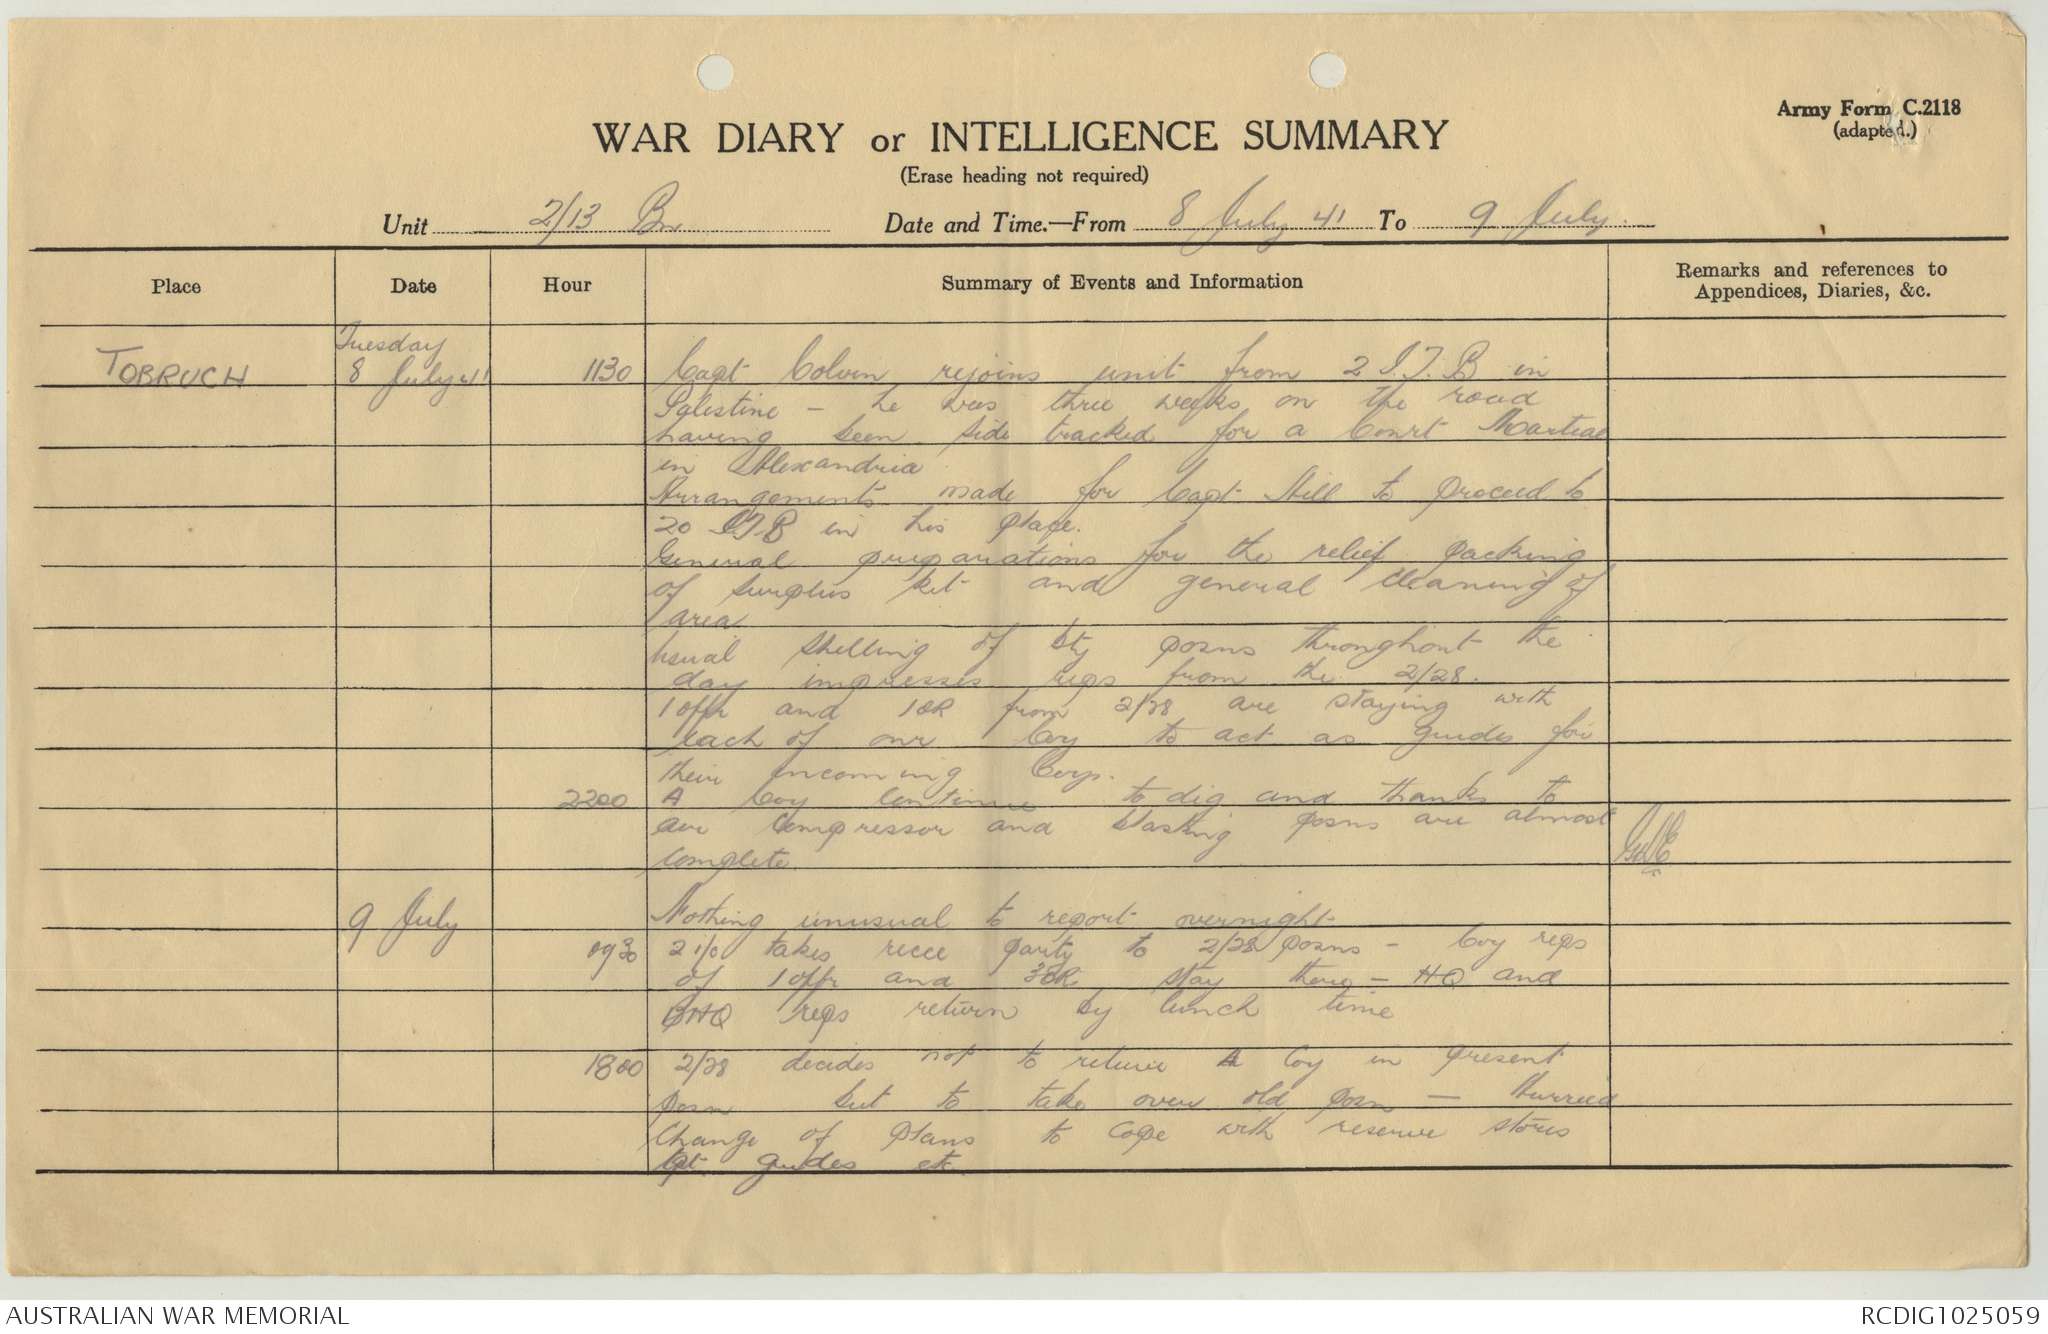 Army Form C.2118
(adapted.)
WAR DIARY or INTELLIGENCE SUMMARY
(Erase heading not required)
Unit 2/13 Bn Date and Time.—From 8 July 41 To 9 July.
Place Date Hour Summary of Events and Information Remarks and references to Appendices, Diaries, &c.
TOBRUCH Tuesday 8 July 41 1130 Capt Colvin rejoins unit from 2 I.T.B in
Palestine - he was three weeks on the road
having been side tracked for a Court Martial
in Alexandria.
Arrangements made for Capt Hill to proceed to
20 I.T.B in his place.
General preparations for the relief packing
of surplus kit and general cleaning of
area
Usual shelling of bty posns throughout the
day impresses reps from the 2/28.
1 offr and 1 OR from 2/28 are staying with
each of our Coy to act as guides for
their incoming Coys.
2200 A Coy continue to dig and thanks to
air compressor and blasting posns are almost
complete
9 July Nothing unusual to report overnight
0930 2 i/c takes recce party to 2/28 posns - Coy reps
of 1 offr and 3 OR stay there - HQ and
BHQ reps return by lunch time
1800 2/28 decides not to relieve A Coy in present
posn but to take over old posn — Hurried
change of plans to cope with reserve stores
tpt guides etc.
AUSTRALIAN WAR MEMORIAL
RCDIG1025059